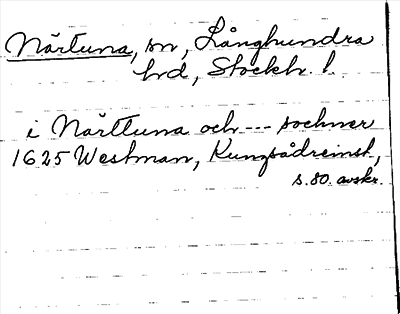 Närtuna, sn, Långhundra
hd, Stockh. l.
i Närttuna och --- sochner
1625 Westman, Kungsådreinst,
s. 80. avskr.